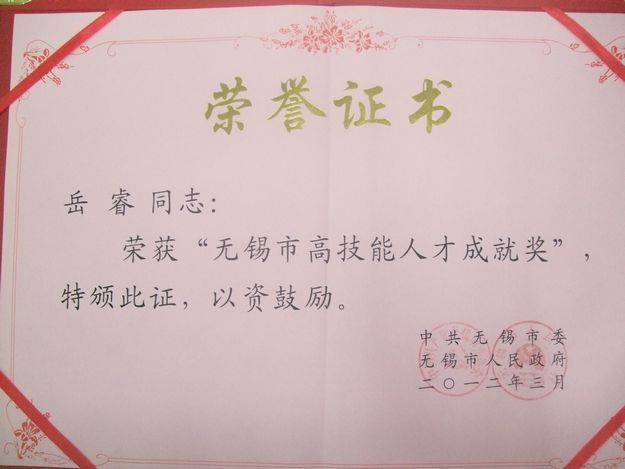 荣誉证书
岳 睿 同志：
荣获“无锡市高技能人才成就奖”，
特颁此证，以资鼓励。
中共无锡市委
无锡市人民政府
二〇一二年三月